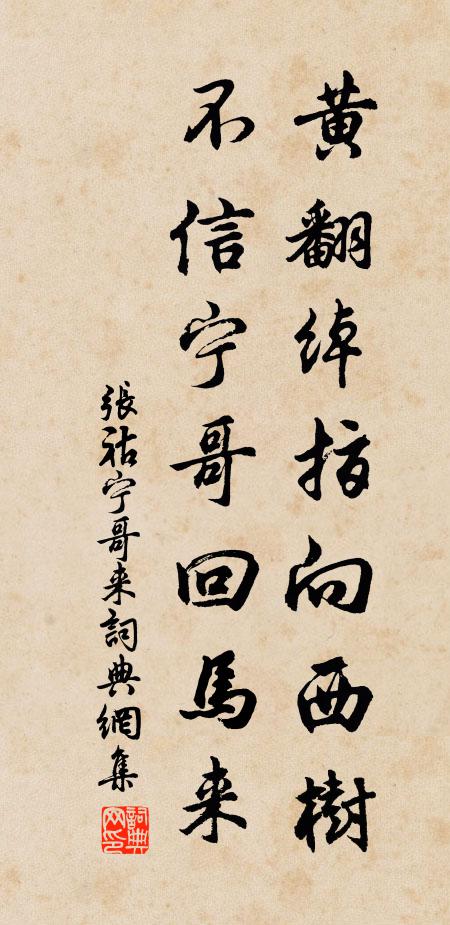 黄翻绰指向西樹
不信宁哥回馬来
張祜宁哥来詞典網集
詞典网印